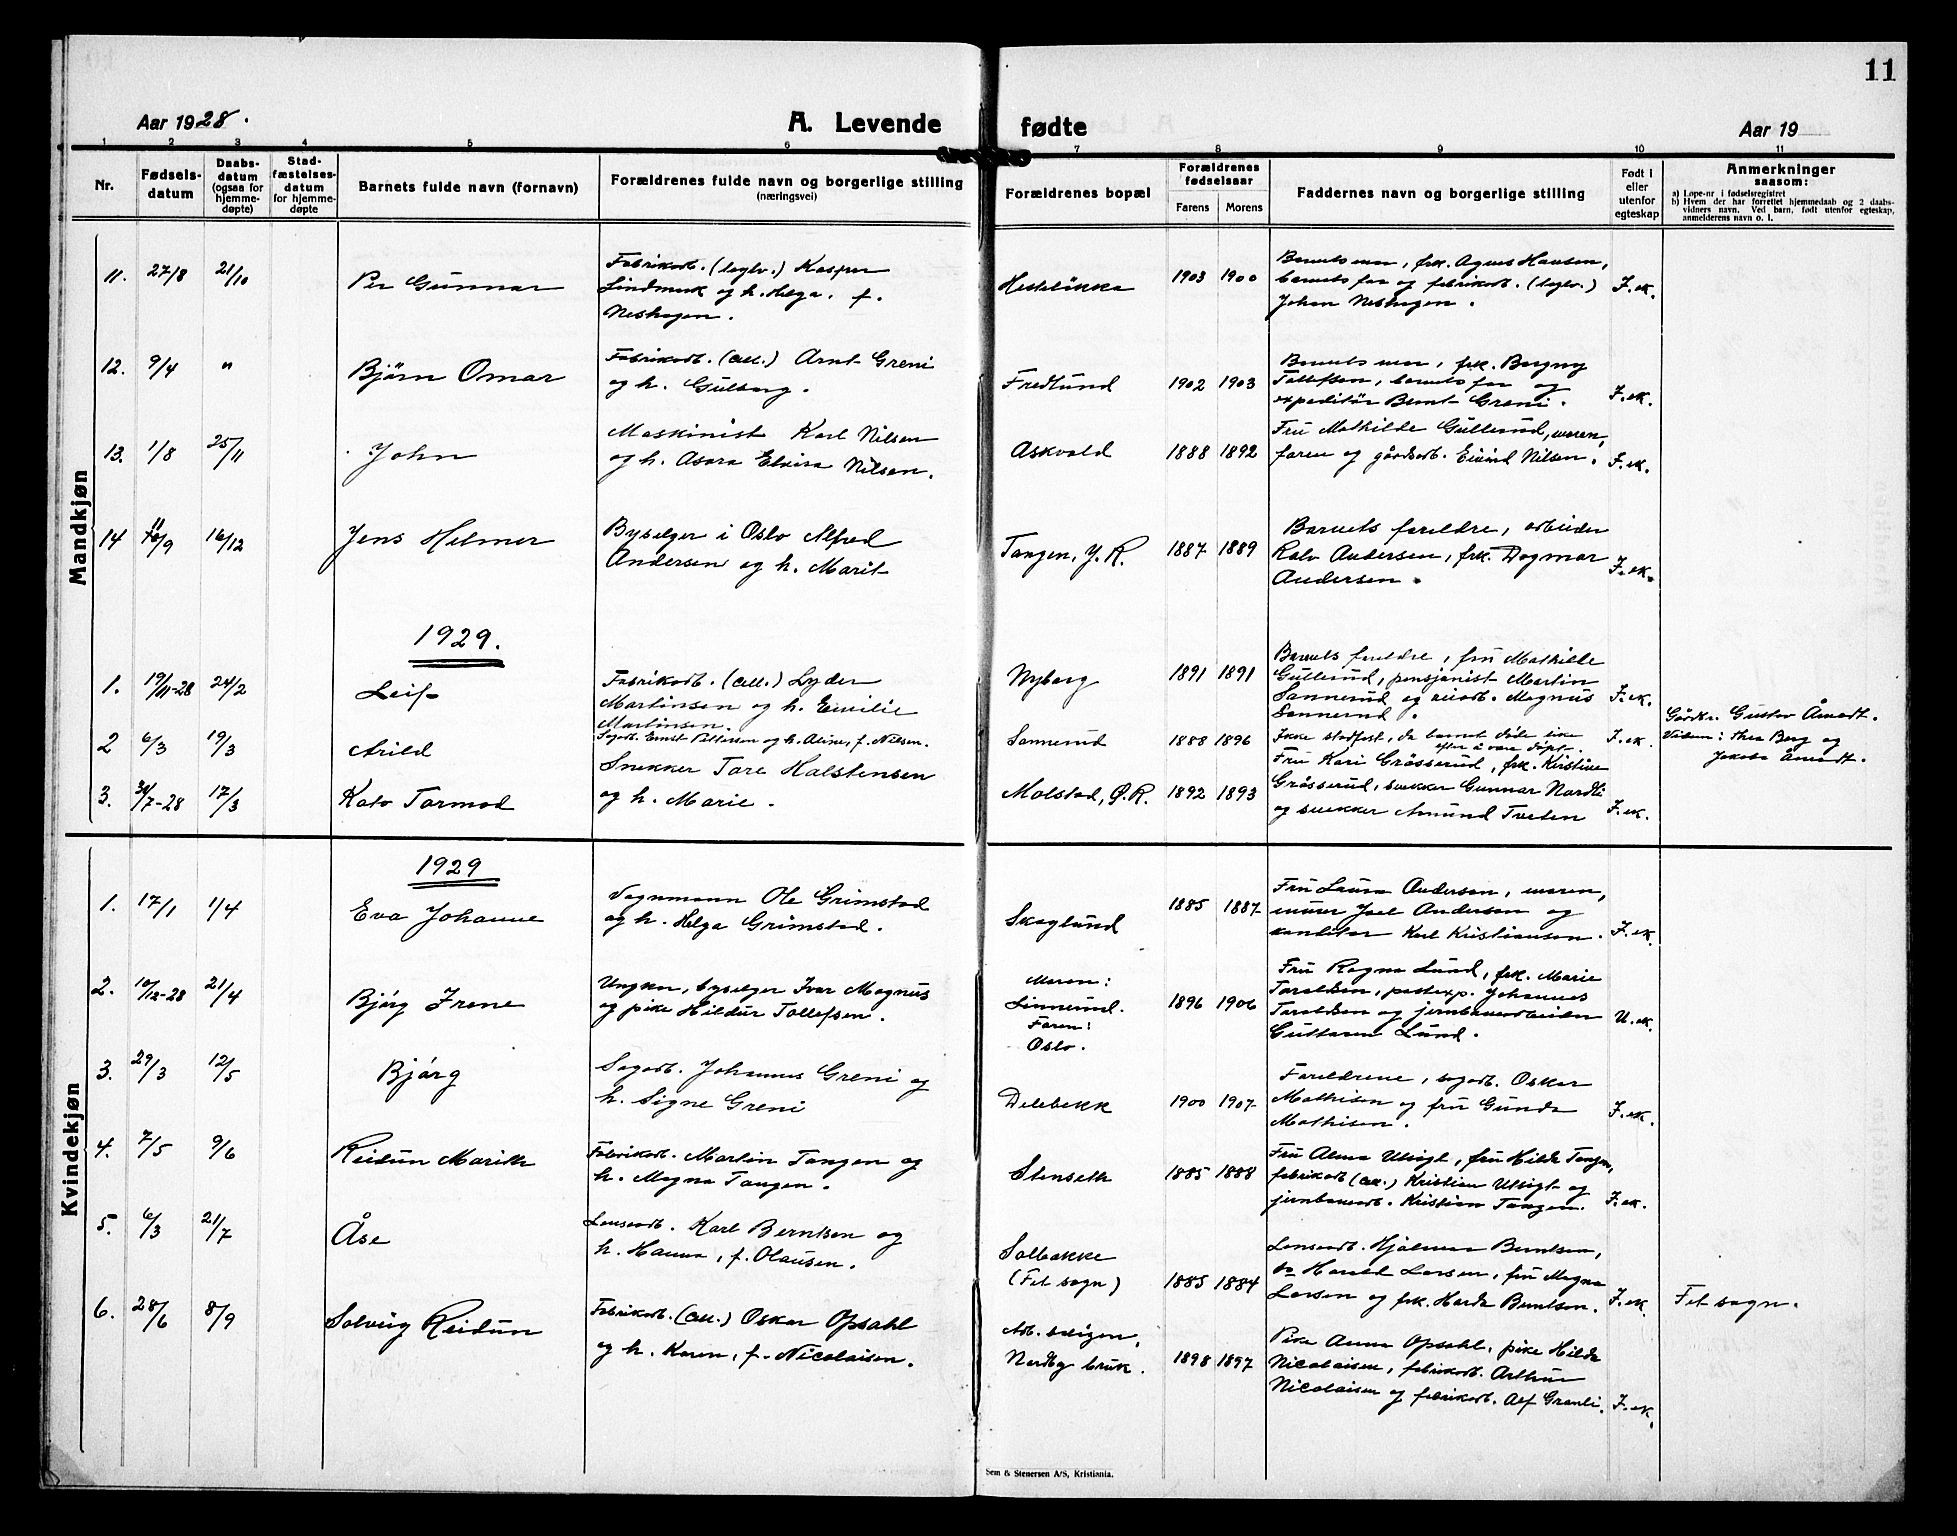 11
Aar 1928.
A. Levende fødte
Aar 19
1 2 3 4 5 6 7 8 9 10 11
Nr.
Fødsels-
datum
Daabs-
datum
(ogsaa for
hjemme-
døpte)
Stad-
fæstelses-
datum
for hjemme-
døpte
Barnets fulde navn (fornavn)
Forældrenes fulde navn og borgerlige stilling
(næringsvei)
Forældrenes bopæl
Forældrenes
fødselsaar
Farens Morens
Faddernes navn og borgerlige stilling
Født i
eller
utenfor
egteskap
Anmerkninger
saasom:
a) Løpe-nr. i fødselsregistret
b) Hvem der har forrettet hjemmedaab og 2 daabs-
vidners navn. Ved barn, født utenfor egteskap,
anmelderens navn o. l.
Mandkjøn
11. 27/8 21/10 Per Gunnar
Fabrikarb. (teglv.) Kasper
Lindmark og h. Helga, f.
Neshagen.
1903 1900
Barnets mor, frk. Agnes Hansen,
barnets far og fabrikarb. (teglv.)
Johan Neshagen.
I. ek.
12. 9/4 " Bjørn Omar
Fabrikarb. (cell.) Arnt Greni
og h. Gulborg.
Fredlund 1902 1903
Barnets mor, frk. Borgny
Tollefsen, barnets far og
expeditør Bernt Greni.
I. ek.
13. 1/8 25/11 John
Maskinist Karl Nilsen
og h. Asora Elvira Nilsen.
Askvold 1888 1892
Fru Mathilde Gullerud, moren,
faren og gårdsarb. Eivind Nilsen.
I. ek.
14 11/9 16/12 Jens Helmer
Byselger i Oslo Alfred
Andersen og h. Marit
Tangen, Y. R. 1887 1889
Barnets foreldre, arbeider
Kalv Andersen, frk. Dagmar
Andersen.
I. ek.
1929.
1. 19/11-28 24/2 Leif
Fabrikarb. (cell.) Lyder
Martinsen og h. Emilie
Martinsen.
Nyborg 1891 1891
Barnets foreldre, fru Mathilde
Gullerud, pensjonist Martin
Sannerud og Magnus
Sannerud.
I. ek.
2 6/3 19/3 Arild
Sagarb. Ernst Pettersen og h. Aline, f. Nilsen.
Sannerud 1888 1896
Ikke stadfest, da barnet døde like
efter å være døpt.
I. ek.
Gårdbr. Gustav Åmodt.
Vitner: Thea Berg og
Jakoba Åmodt.
3. 30/7-28 17/3 Kalv Tormod
Snekker Tore Halstensen
og h. Marie.
Molstad, Ø. R. 1892 1893
Fru Kari Grøsserud, frk. Kirstine
Grøsserud, snekker Gunnar Nordli
og snekker Amund Tveten
I. ek.
Kvindekjøn
1929
1. 17/1 1/4 Eva Johanne
Vognmann Ole Grimstad
og h. Helga Grimstad.
Skoglund 1885 1887
Fru Laura Andersen, moren,
murer Joel Andersen og
konditor Karl Kristiansen.
I. ek.
2. 10/12-28 21/4 Bjørg Irene
Ungkar, byselger Ivar Magnus
og pike Hildur Tollefsen.
Moren:
Linnerud.
Faren:
Oslo.
1896 1906
Fru Ragna Lund, frk. Marie
Toraldsen, postexp. Johannes
Toraldsen og jernbanearbeider
Guttorm Lund.
U. ek.
3. 29/3 12/5 Bjørg
Sagarb. Johannes Greni og
h. Signe Greni
Delebekk 1900 1907
Foreldrene, sagarb. Oskar
Mathisen og fru Gunda
Mathisen.
I. ek.
4. 7/5 9/6 Reidun Marith
Fabrikarb. Martin Tangen og
h. Magna Tangen.
Stenseth 1885 1888
Fru Alma Utsigt, fru Hilda Tangen,
fabrikarb (cell.) Kristian Utsigt og
jernbanearb. Kristian Tangen.
I. ek.
5. 6/3 21/7 Åse
Lensearb. Karl Berntsen og
h. Hanna, f. Olausen.
Solbakke
(Fet sogn)
1885 1884
Lensearb. Hjalmar Berntsen,
do Harald Larsen, fru Magna
Larsen og frk. Harda Berntsen.
I. ek.
Fet sogn.
6. 28/6 8/9 Solveig Reidun
Fabrikarb. (cell.) Oskar Opsahl
og h. Karen, f. Nicolaisen.
Arb. boligen,
Nordby bruk.
1898 1897
Pike Anna Opsahl, pike Hilda
Nicolaisen, fabrikarb. Arthur
Nicolaisen og fabrikarb. Alf Granli.
I. ek.
Sem & Stenersen A/S, Kristiania.